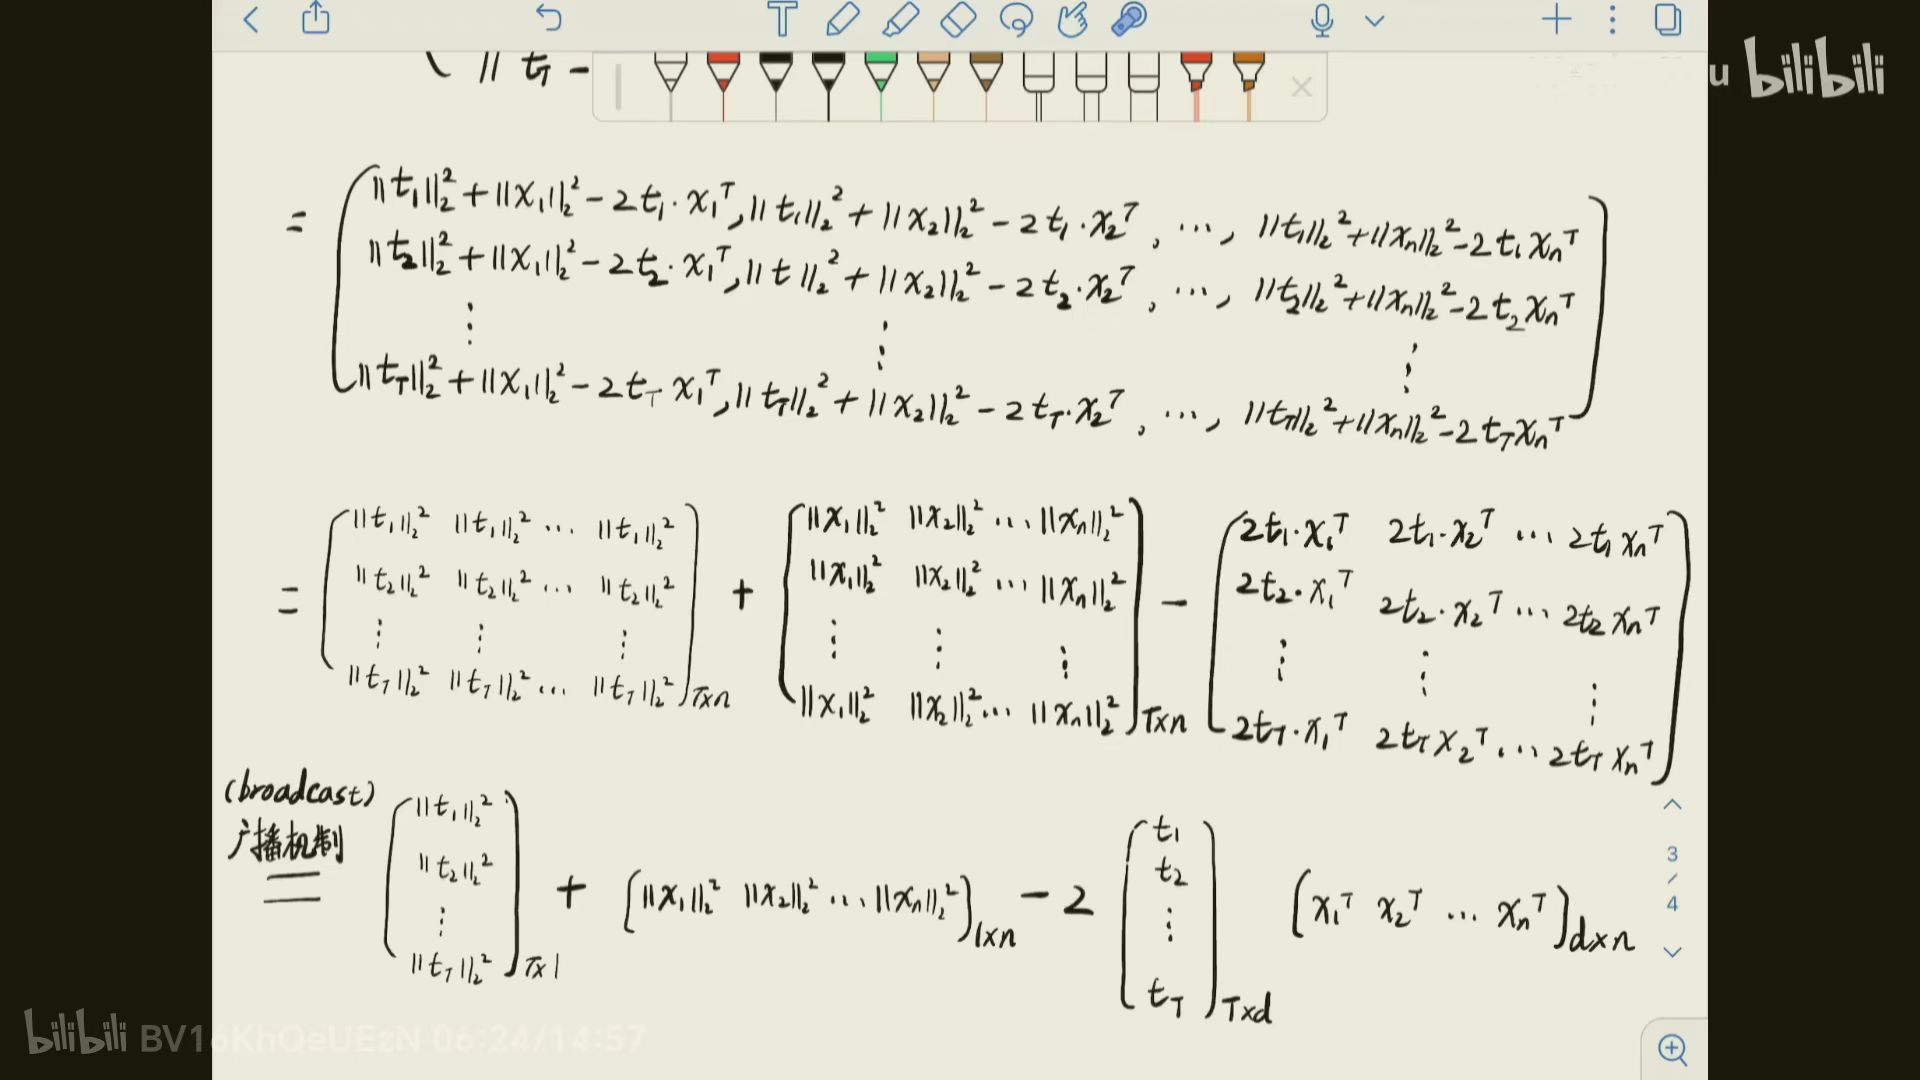 u bilibili
( || t_T −
= ( ||t₁||₂² + ||x₁||₂² − 2t₁·x₁ᵀ, ||t₁||₂² + ||x₂||₂² − 2t₁·x₂ᵀ, ⋯, ||t₁||₂² + ||xₙ||₂² − 2t₁xₙᵀ
||t₂||₂² + ||x₁||₂² − 2t₂·x₁ᵀ, ||t||₂² + ||x₂||₂² − 2t₂·x₂ᵀ, ⋯, ||t₂||₂² + ||xₙ||₂² − 2t₂xₙᵀ
⋮ ⋮ ⋮
||t_T||₂² + ||x₁||₂² − 2t_T x₁ᵀ, ||t_T||₂² + ||x₂||₂² − 2t_T·x₂ᵀ, ⋯, ||t_T||₂² + ||xₙ||₂² − 2t_T xₙᵀ )
= ( ||t₁||₂² ||t₁||₂² ⋯ ||t₁||₂² ; ||t₂||₂² ||t₂||₂² ⋯ ||t₂||₂² ; ⋮ ⋮ ⋮ ; ||t_T||₂² ||t_T||₂² ⋯ ||t_T||₂² )T×n + ( ||x₁||₂² ||x₂||₂² ⋯ ||xₙ||₂² ; ||x₁||₂² ||x₂||₂² ⋯ ||xₙ||₂² ; ⋮ ⋮ ⋮ ; ||x₁||₂² ||x₂||₂² ⋯ ||xₙ||₂² )T×n − ( 2t₁·x₁ᵀ 2t₁·x₂ᵀ ⋯ 2t₁xₙᵀ ; 2t₂·x₁ᵀ 2t₂·x₂ᵀ ⋯ 2t₂xₙᵀ ; ⋮ ⋮ ⋮ ; 2t_T·x₁ᵀ 2t_T x₂ᵀ ⋯ 2t_T xₙᵀ )
(broadcast)
广播机制
= ( ||t₁||₂² ; ||t₂||₂² ; ⋮ ; ||t_T||₂² )T×1 + ( ||x₁||₂² ||x₂||₂² ⋯ ||xₙ||₂² )1×n − 2 ( t₁ ; t₂ ; ⋮ ; t_T )T×d ( x₁ᵀ x₂ᵀ ⋯ xₙᵀ )d×n
3
/
4
bilibili BV16KhOeUEzN 06:24/14:57